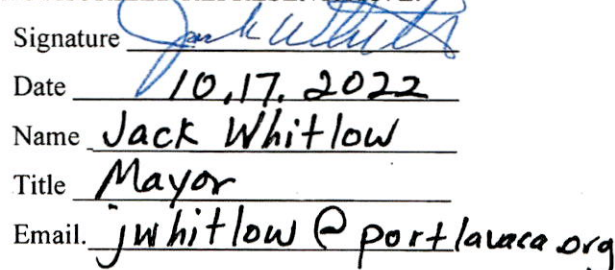 Signature Jack Whitlow
Date 10.17.2022
Name Jack Whitlow
Title Mayor
Email. jwhitlow@portlavaca.org